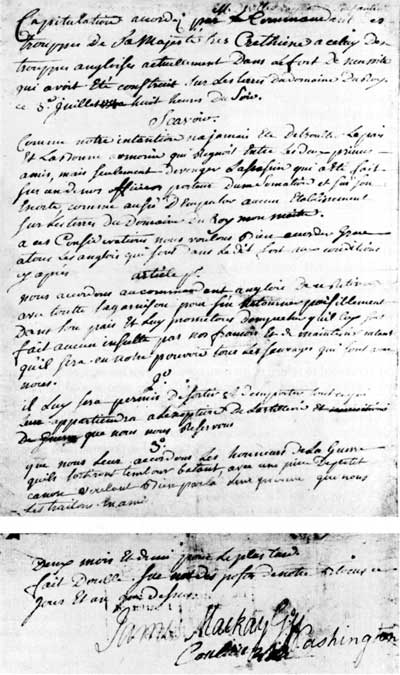 Capitulation accordée par le Commandant des
trouppes de Sa Majesté tres Crethiene a celuy des
trouppes angloises actuellement Dans le fort de necessité
qui avoit Eté construit sur Les terres du domaine du Roy.
ce 3e juillet 1754 a huit heures du Soir.
Scavoir.
Comme notre intention na jamais Eté de troubler La paix
Et La bonne armonie qui Regnoit Entre Les deux princes
amis, mais seulement de venger Lassasin qui a Eté fait
sur un de nos officiers porteur d'une sommation et sur son
Escorte comme aussy D'empecher aucun Etablissement
sur Les terres du Domaine du Roy mon maitre.
a ces Considerations nous voulons Bien accorder Grace
a tous Les anglois qui sont dans Le dit fort aux conditions
cy apres
article 1er
nous accordons au commandant anglois de se Retirer
avec toutte La garnison pour s'en Retourner paisiblement
Dans son païs Et Luy promettons d'empecher qu'il Luy soit
fait aucun insulte par nos francois Et de maintenir autant
qu'il sera en notre pouvoir tous Les sauvages qui sont avec
nous.
2o
il Luy sera permis de sortir Et d'emporter tout ce qui
Leur appartiendra a L'exception de L'artillerie
que nous nous Reservons
3o
que nous Leur accordons Les honneurs de La Guerre
qu'ils sortiront tambour Battant avec une piece De petit
canon voulant Bien par la Leur prouver que nous
Les traitons En ami
Deux mois Et demi pour Le plus tard
fait Double sur un des postes de notre Blocus ce
Jour Et an que dessus.
James Mackay Go Washington
Coulon